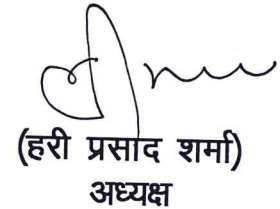 (हरी प्रसाद शर्मा)
अध्यक्ष